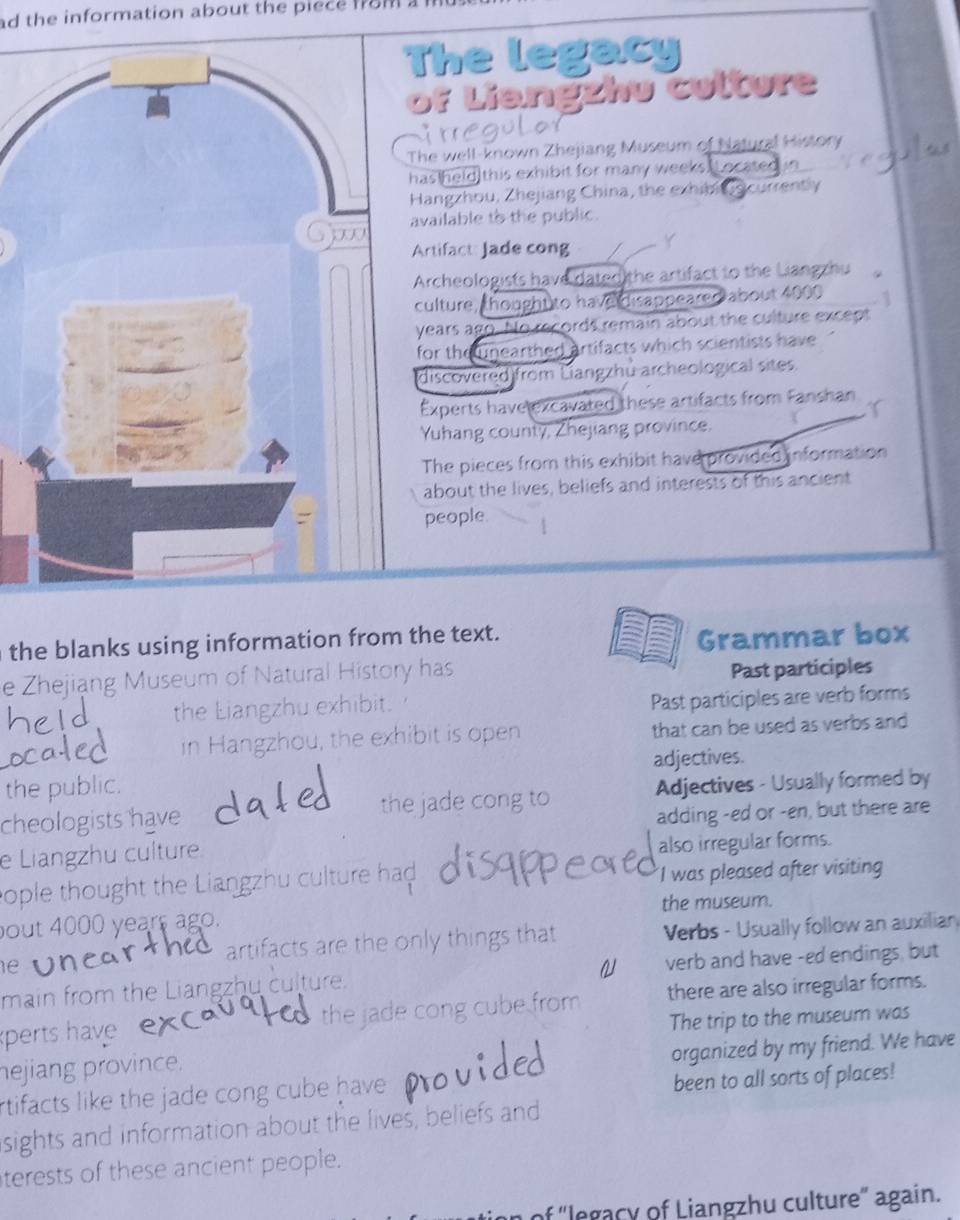 ad the information about the piece from a
The legacy
of Liangzhu culture
irregular
The well-known Zhejiang Museum of Natural History
has held this exhibit for many weeks. Located in
regular
Hangzhou, Zhejiang China, the exhibit is currently
available to the public.
Artifact: Jade cong
r
Archeologists have dated the artifact to the Liangzhu
culture, thought to have disappeared about 4000
years ago. No records remain about the culture except
for the unearthed artifacts which scientists have
discovered from Liangzhu archeological sites.
Experts have excavated these artifacts from Fanshan
Yuhang county, Zhejiang province.
The pieces from this exhibit have provided information
about the lives, beliefs and interests of this ancient
people.
the blanks using information from the text.
e Zhejiang Museum of Natural History has
held the Liangzhu exhibit.
Located in Hangzhou, the exhibit is open
the public.
cheologists have dated the jade cong to
e Liangzhu culture.
eople thought the Liangzhu culture had disappeared
bout 4000 years ago.
he unearthed artifacts are the only things that
main from the Liangzhu culture.
xperts have excavated the jade cong cube from
hejiang province.
rtifacts like the jade cong cube have provided
nsights and information about the lives, beliefs and
nterests of these ancient people.
Grammar box
Past participles
Past participles are verb forms
that can be used as verbs and
adjectives.
Adjectives - Usually formed by
adding -ed or -en, but there are
also irregular forms.
I was pleased after visiting
the museum.
Verbs - Usually follow an auxiliary
verb and have -ed endings, but
there are also irregular forms.
The trip to the museum was
organized by my friend. We have
been to all sorts of places!
of "legacy of Liangzhu culture" again.